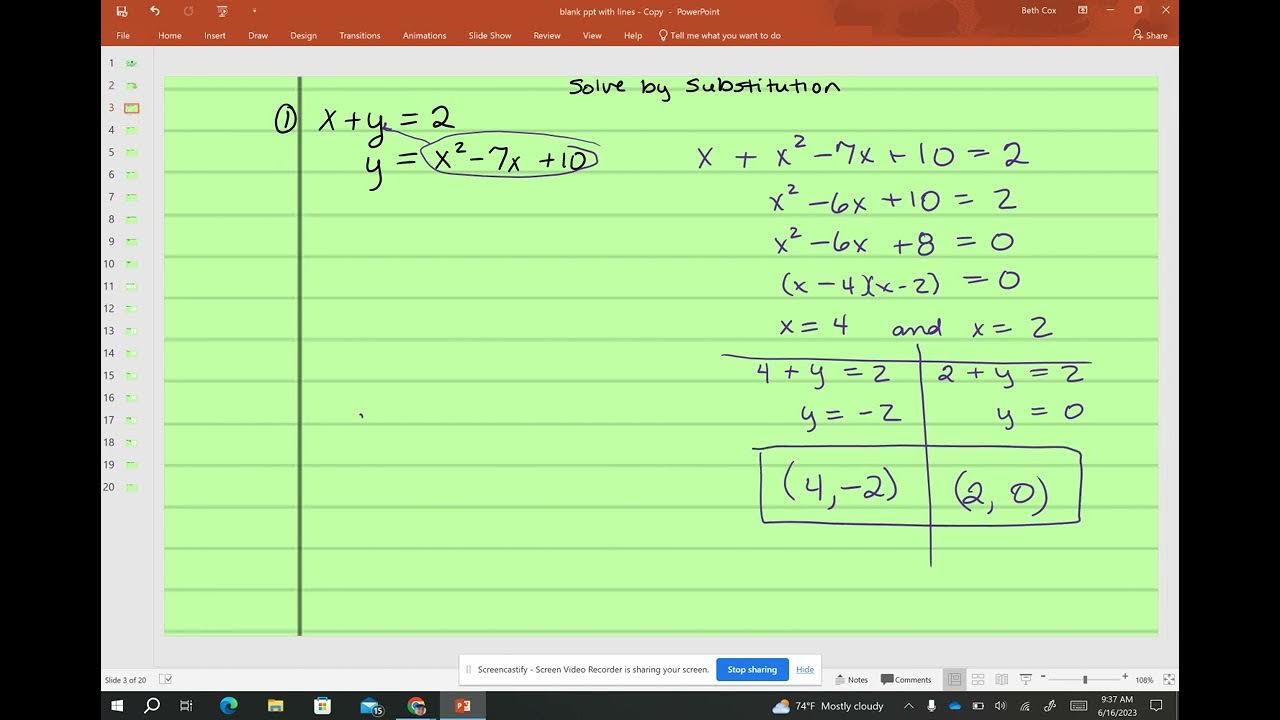 blank ppt with lines - Copy - PowerPoint
Beth Cox
File Home Insert Draw Design Transitions Animations Slide Show Review View Help Tell me what you want to do Share
1
2
3
4
5
6
7
8
9
10
11
12
13
14
15
16
17
18
19
20
Solve by Substitution
① x + y = 2
y = x² - 7x + 10
x + x² - 7x + 10 = 2
x² - 6x + 10 = 2
x² - 6x + 8 = 0
(x - 4)(x - 2) = 0
x = 4 and x = 2
4 + y = 2 2 + y = 2
y = -2 y = 0
(4, -2) (2, 0)
Screencastify - Screen Video Recorder is sharing your screen. Stop sharing Hide
Slide 3 of 20 Notes Comments 108%
15 74°F Mostly cloudy 9:37 AM
6/16/2023